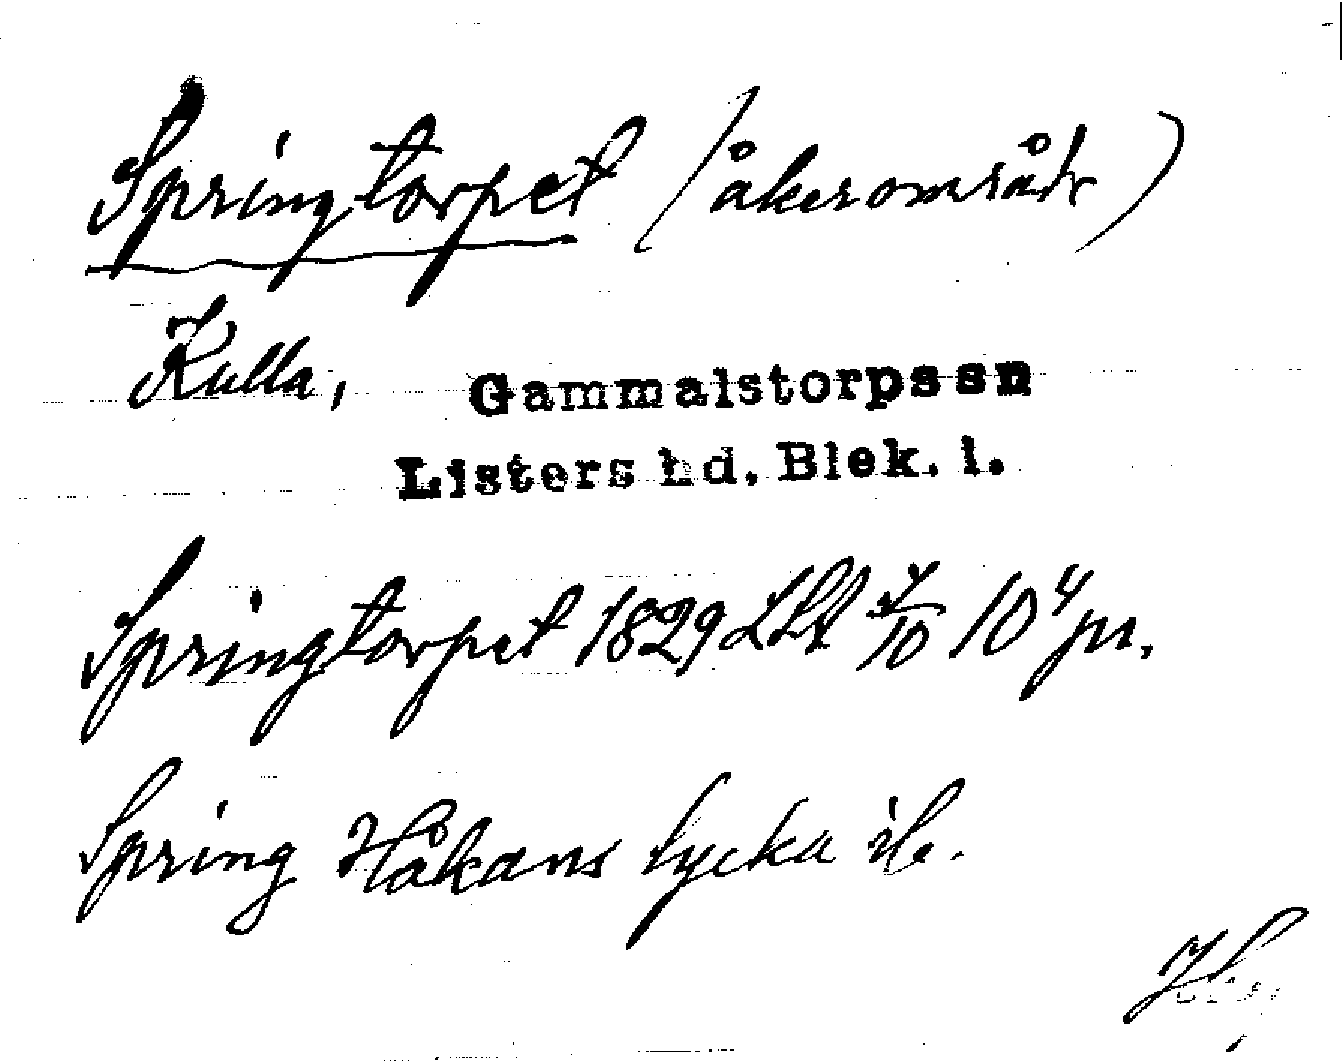 Springtorpet (åkerområde)
Kulla, Gammalstorpssn
Listers hd, Blek. l.
Springtorpet 1829 LSA 10⁴ pr.
Spring Håkans lycka ib.